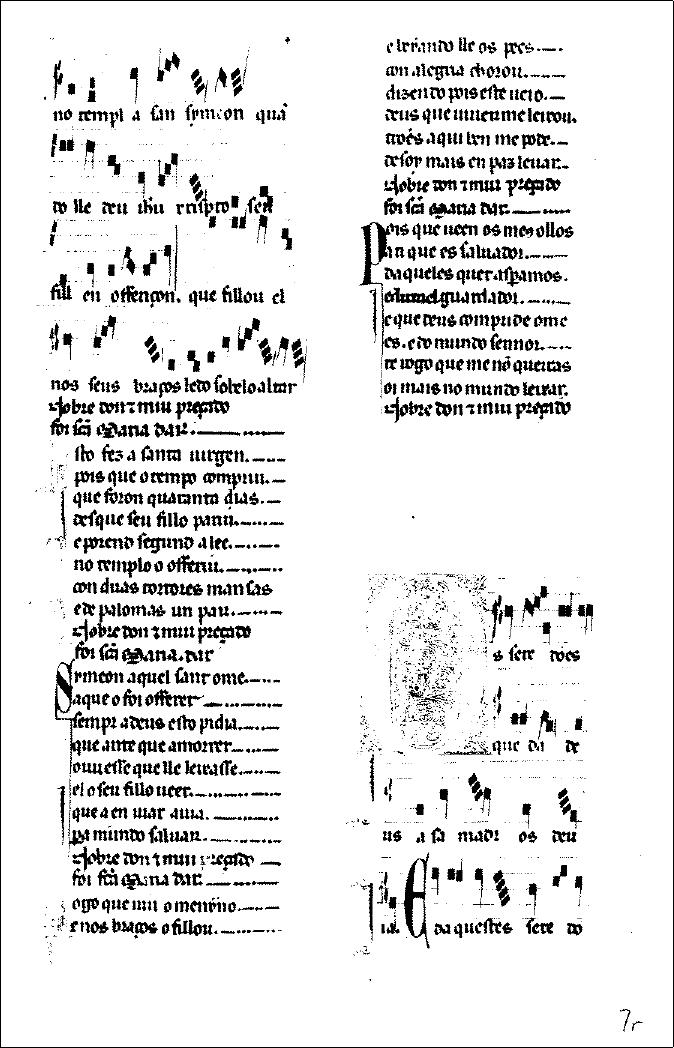 no templ a san symeon quã
do lle deu ihu cristo seu
fill en offerçon. que fillou el
nos seus braços ledo sobelo altar
Sobre don ꞇ mui preçado
foi scã Maria dar.
sto fez a santa uirgen.
pois que o tempo compriu.
que foron quaranta dias.
desque seu fillo pariu.
e porend segund a lee.
no templo o offeriu.
con duas tortores mansas
e de palomas un par.
Sobre don ꞇ mui preçado
foi scã Maria. dar
Symeon aquel sant ome.
a que o foi offerer
sempr a deus esto pidia.
que ante que a morrer.
ouuesse que lle leixasse.
el o seu fillo ueer.
que a en uiar auia.
pa mundo saluar.
Sobre don ꞇ mui preçado
foi scã Maria dar.
ogo que uiu o menyno.
e nos braços o fillou.
e leuando lle os pees.
con alegria chorou.
dizendo pois este ueio.
deus que uiuen me leixou.
troes aqui ben me pode.
desoy mais en paz leuar.
Sobre don ꞇ mui preçado
foi scã Maria dar.
Pois que ueen os meos ollos
an que es saluador.
daqueles que t asperamos.
guardador.
e que deus comprude ome
es. e do mundo sennor.
te rogo que me nõ queiras
oi mais no mundo leixar.
Sobre don ꞇ mui preçado
s sete does
que da de
us a sa madr os deu
ia. E daquestes sete do
7r